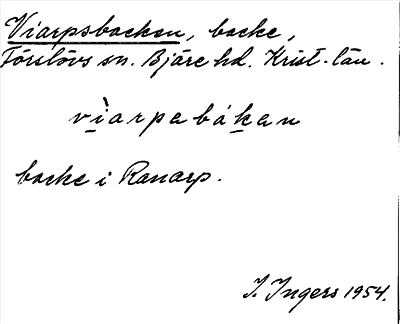 Viarpsbacken, backe,
Förslövs sn. Bjäre hd. Krist-län.
vìarpabákan
backe i Ranarp.
I. Ingers 1954.